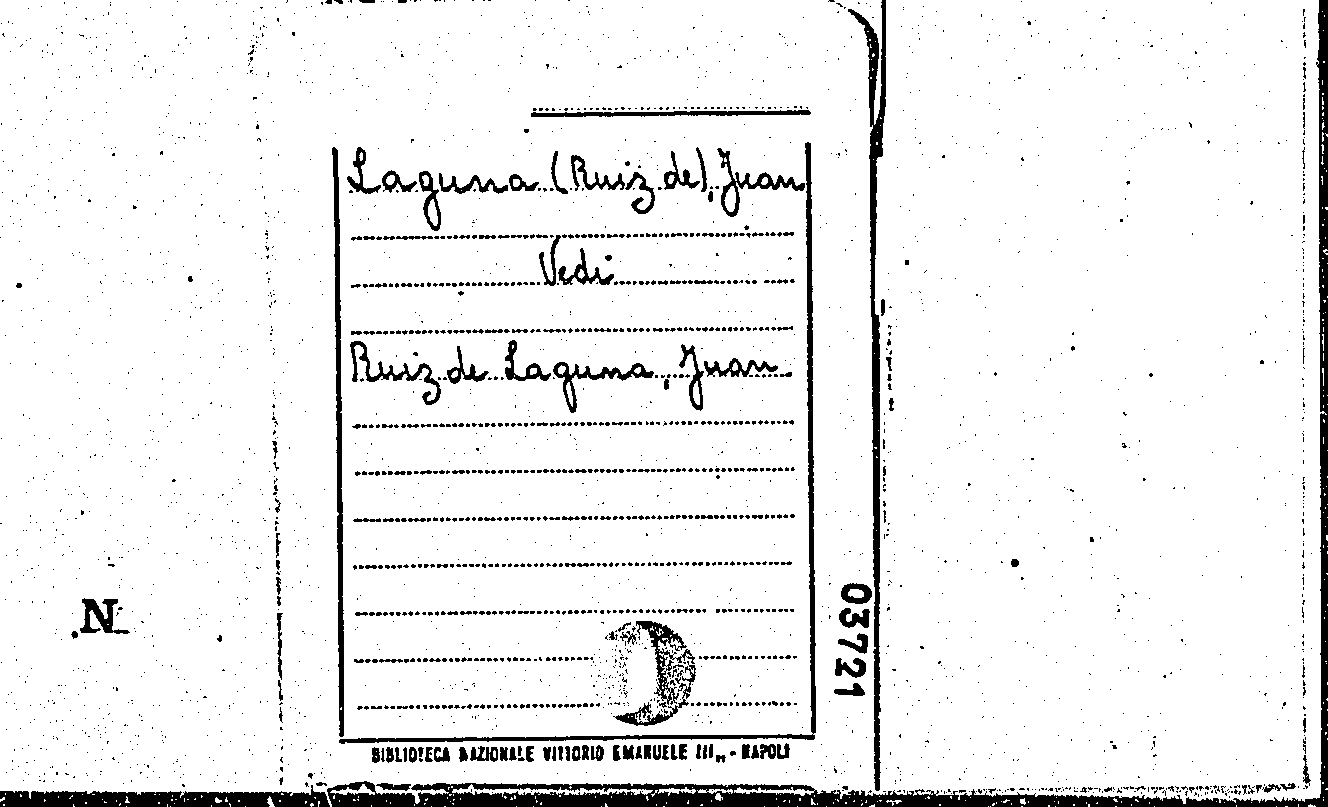 Laguna (Ruiz de), Juan
Vedi
Ruiz de Laguna, Juan
N
03721
BIBLIOTECA NAZIONALE VITTORIO EMANUELE III„ - NAPOLI